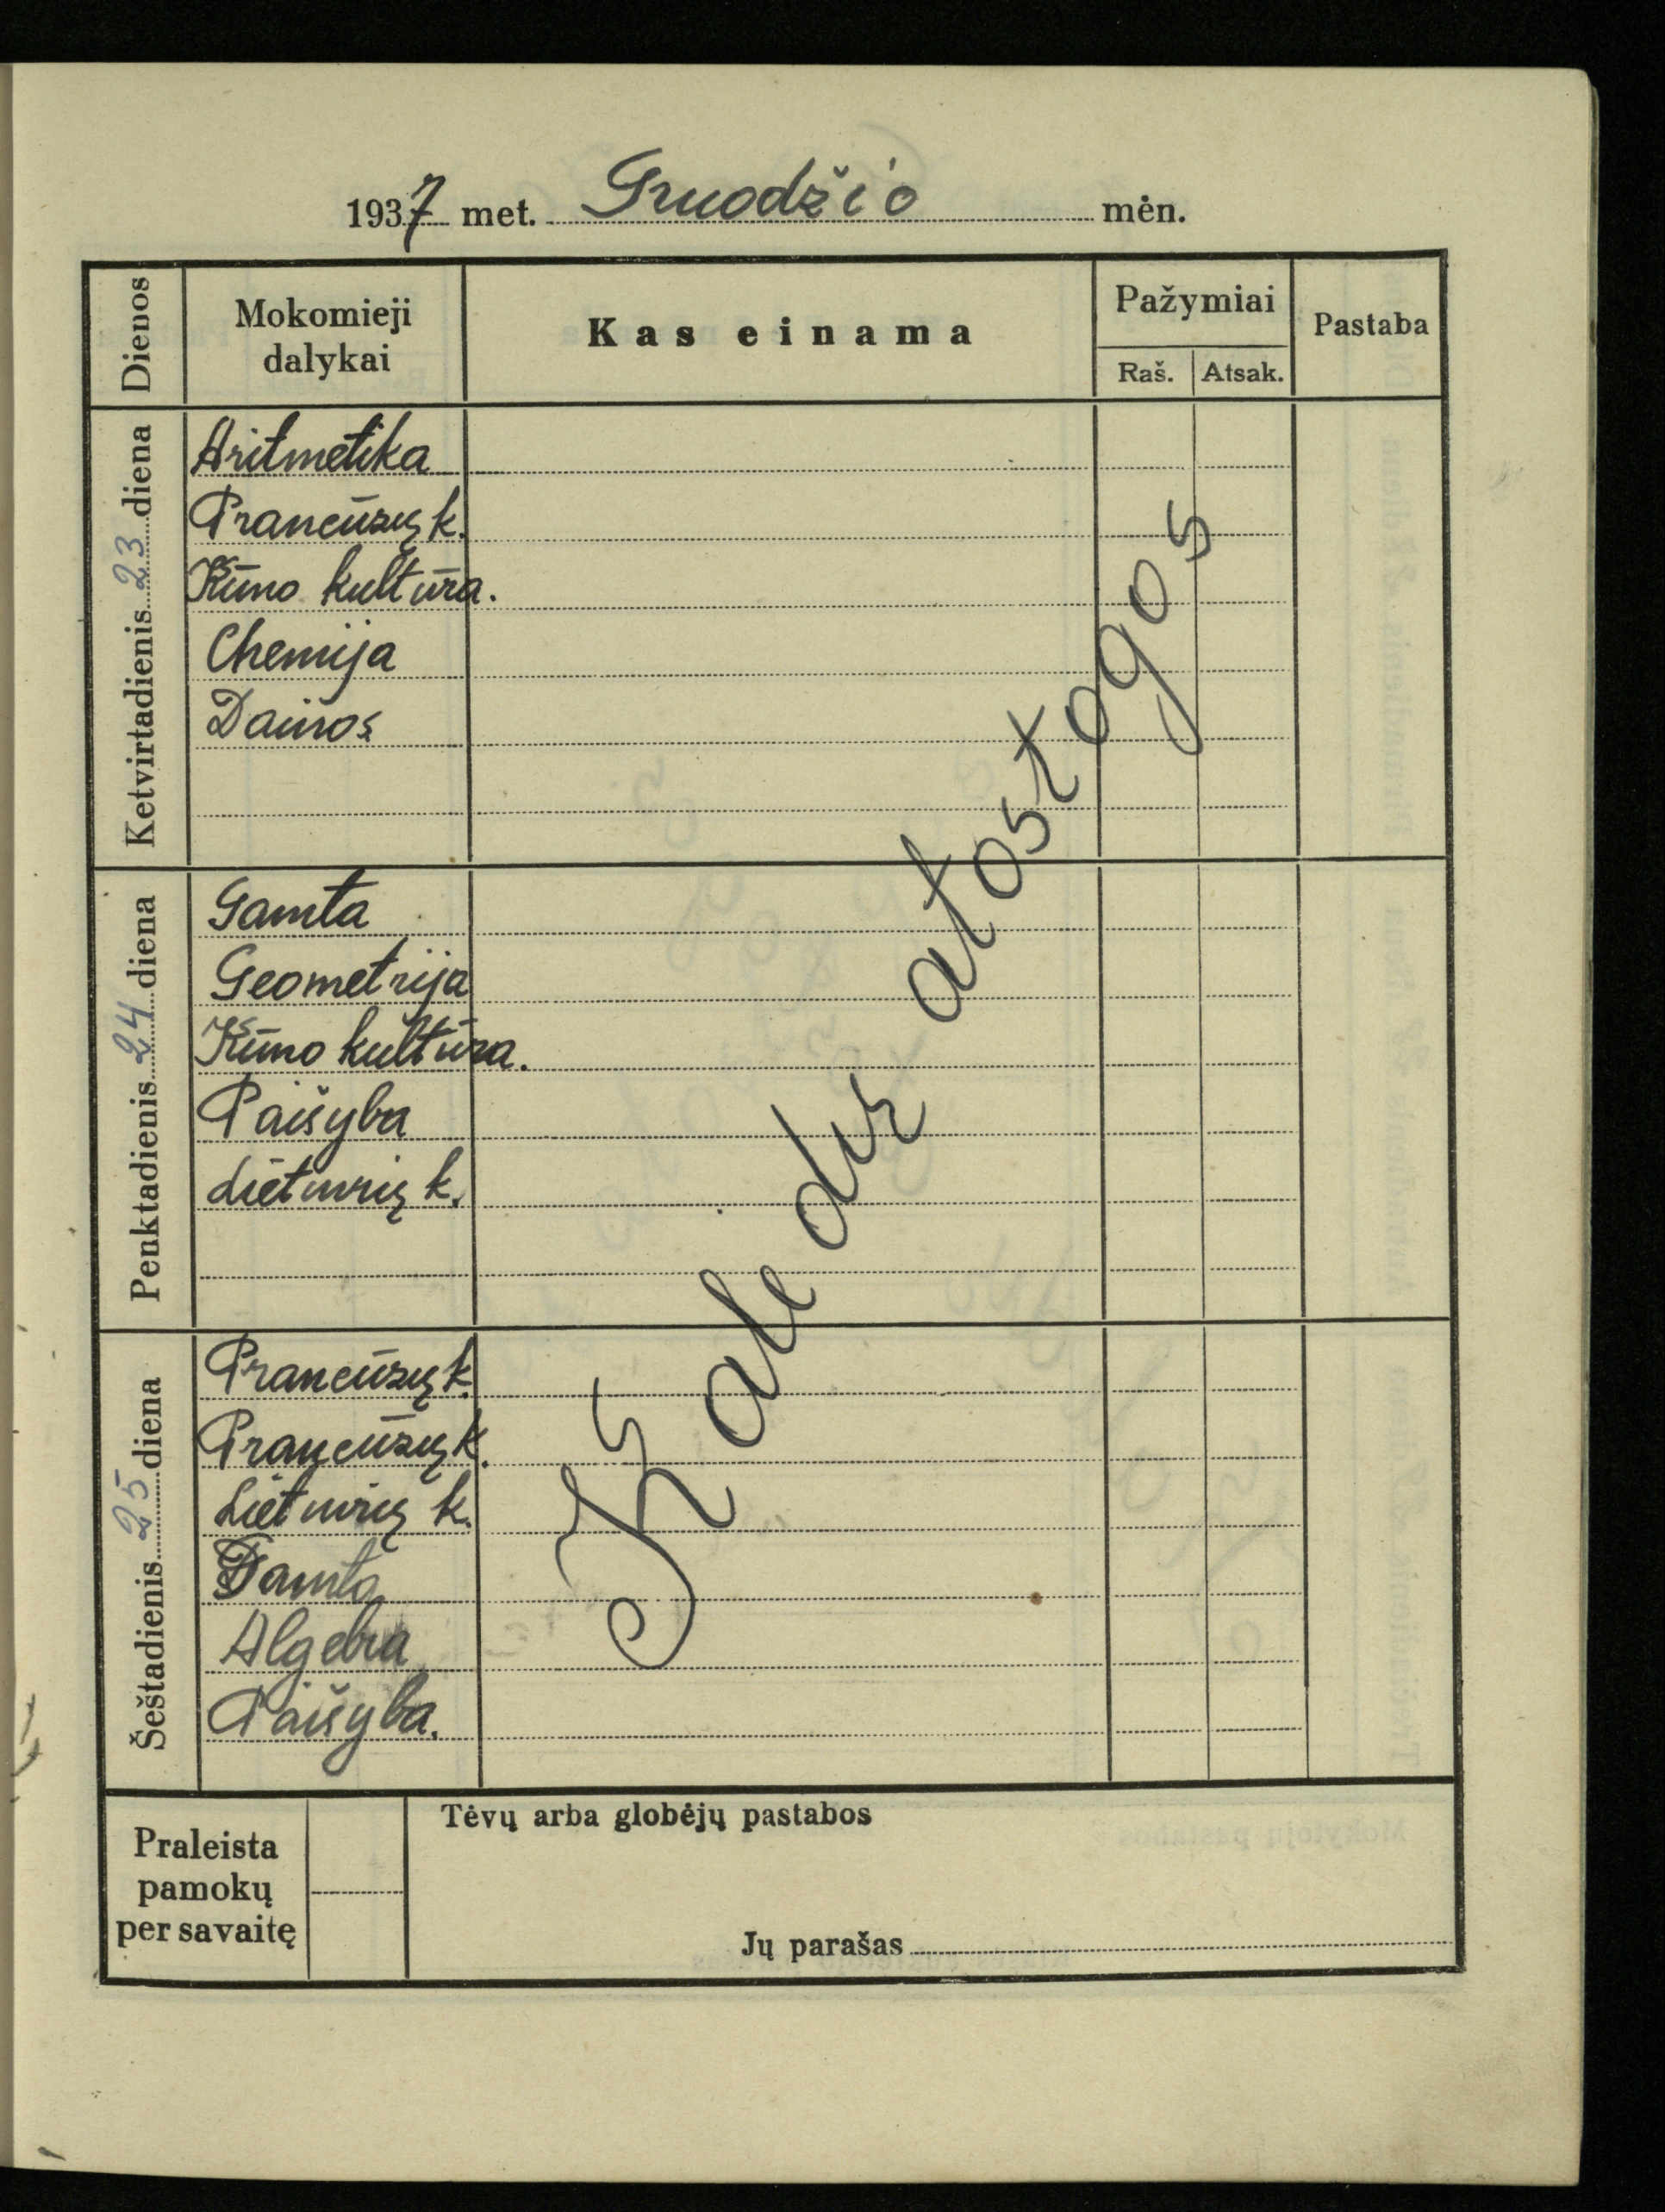 1937 met. Gruodžio mėn.
Dienos
Mokomieji dalykai
Kas einama
Pažymiai
Raš. Atsak.
Pastaba
Ketvirtadienis 23 diena
Aritmetika
Prancūzų k.
Kūno kultūra.
Chemija
Dainos
Penktadienis 24 diena
Gamta
Geometrija
Kūno kultūra.
Paišyba
Lietuvių k.
Šeštadienis 25 diena
Prancūzų k.
Prancūzų k.
Lietuvių k.
Gamta
Algebra
Paišyba.
Kaledų atostogos
Praleista
pamokų
per savaitę
Tėvų arba globėjų pastabos
Jų parašas